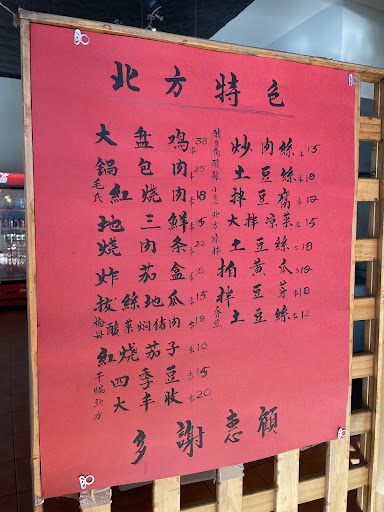 北方特色
大盘鸡 $38
锅包肉 $25
毛氏红烧肉 $18
地三鲜 $15
烧肉条 $22
炸茄盒 $16
拔絲地瓜 $15
梅县酸菜焖猪肉 $18
红烧茄子 $16
干煸四季豆 $15
北方大丰收 $20
炒肉絲 $15
土豆絲 $18
小葱拌豆腐 $12
北方大拌凉菜 $15
土豆絲 $18
拍黄瓜 $12
拌豆芽 $18
土豆絲 $12
多謝惠顧